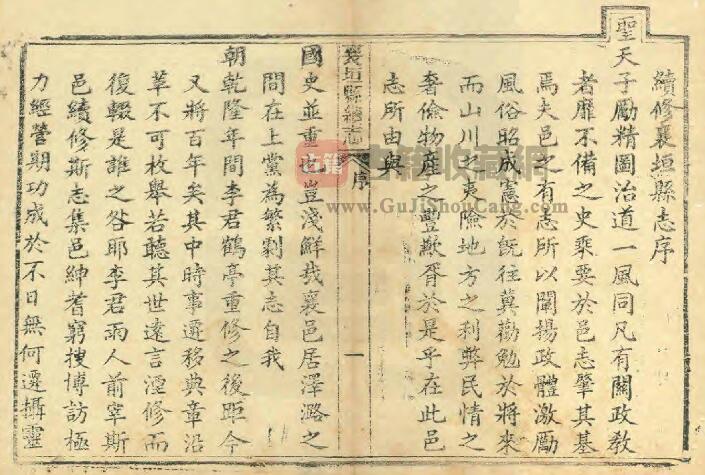 續修襄垣縣志序
聖天子勵精圖治道一風同凡有關政教
者靡不備之史乘要於邑志肇其基
焉夫邑之有志所以闡揚政體激勵
風俗昭成憲於既往冀勸勉於將來
而山川之夷險地方之利弊民情之
奢儉物產之豐歉胥於是乎在此邑
志所由與
襄垣縣續志
序
一
國史並重也豈淺鮮哉襄邑居澤潞之
間在上黨為繁劇其志自我
朝乾隆年間李君鶴亭重修之後距今
又將百年矣其中時事遷移典章沿
革不可枚舉若聽其世遠言湮修而
復輟是誰之咎耶李君雨人前宰斯
邑續修斯志集邑紳耆窮搜博訪極
力經營期功成於不日無何遷攝靈
古籍收藏网
www.GuJiShouCang.com